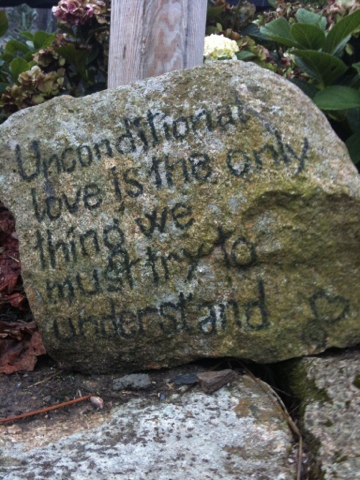 Unconditional
love is the only
thing we
must try to
understand